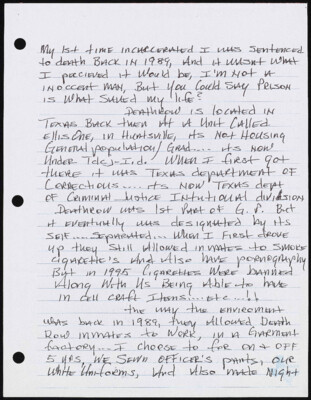 My 1st time incarcerated I was sentenced
to death Back in 1989, And it wasnt what
I percieved it would be, I'm not a
innoccent man, But you could say Prison
is what saved my life?
Deathrow is located in
Texas Back then At A unit Called
Ellis One, in Huntsville, its Not Housing
General population/Grad.... its now
Under Tdcj-I.d. When I first got
there it was Texas department of
Corrections..... its now Texas dept
of Criminal Justice Intitutional division
Deathrow was 1st Part of G.P. But
it eventually was designated by its
self.... Seperated... When I First drove
up they still Allowed inmates to smoke
Cigarette's And Also have pornography
But in 1995 Cigarettes were banned
Along With Us Being Able to have
in cell craft Items....etc...!!
the way the enviroment
was back in 1989, they Allowed Death
Row inmates to work, in a Garment
factory.... I choose to for on & off
5 yrs, We sewn officer's pants, our
White Uniforms, And Also made Night